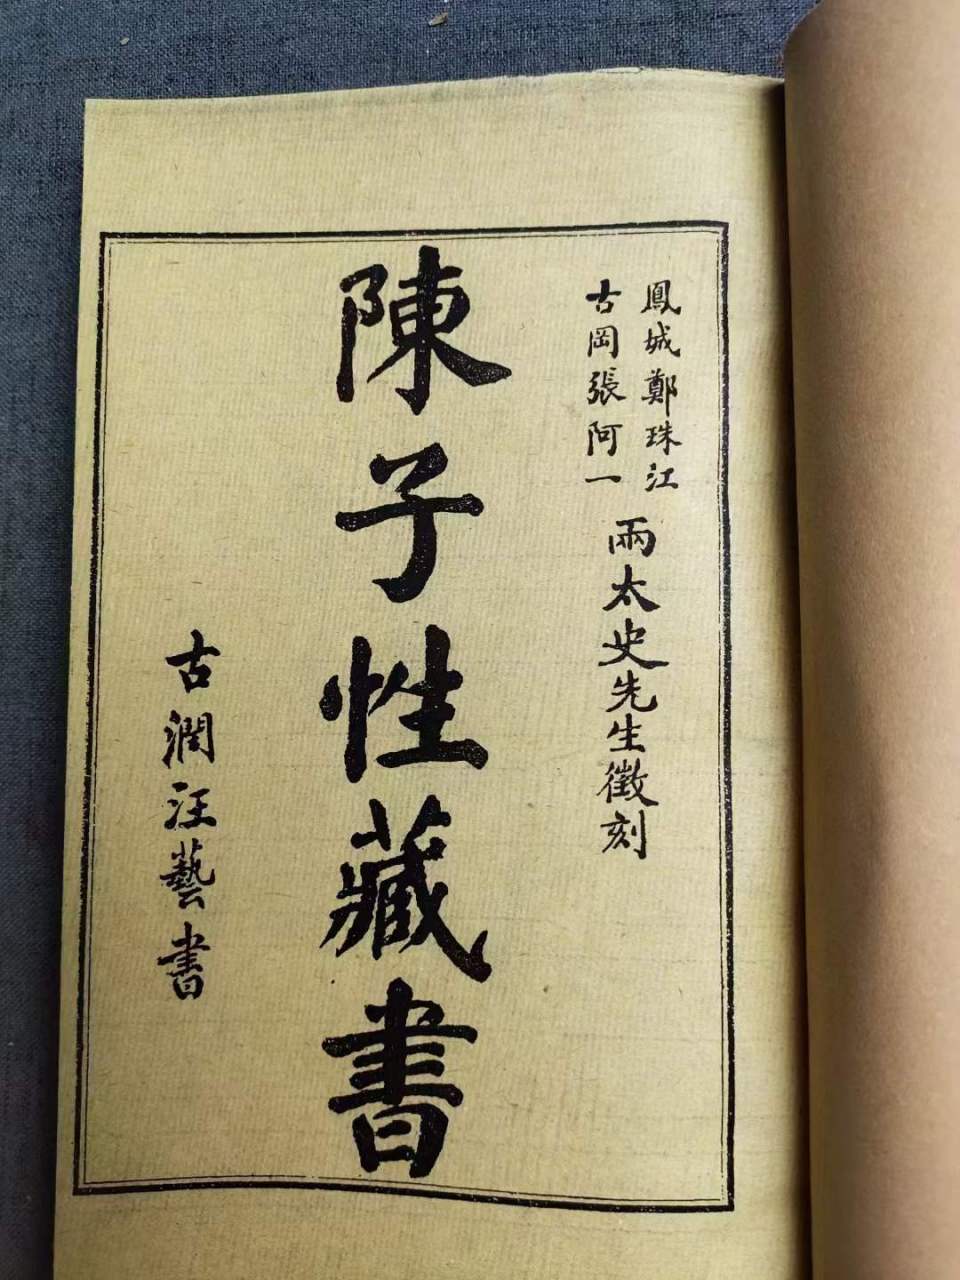 鳳城鄭珠江
古岡張阿一
兩太史先生徵刻
陳子性藏書
古潤汪藝書